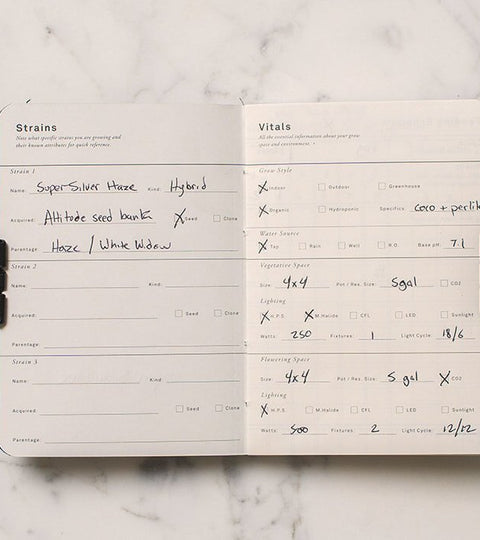 Strains
Note what specific strains you are growing and
their known attributes for quick reference.
Strain 1
Name: Super Silver Haze Kind: Hybrid
Acquired: Altitude seed bank X Seed Clone
Parentage: Haze / White Widow
Strain 2
Name: Kind:
Acquired: Seed Clone
Parentage:
Strain 3
Name: Kind:
Acquired: Seed Clone
Parentage:
Vitals
All the essential information about your grow
space and environment.
Grow Style
X Indoor Outdoor Greenhouse
X Organic Hydroponic Specifics: coco + perlite
Water Source
X Tap Rain Well R.O. Base pH: 7.1
Vegetative Space
Size: 4x4 Pot / Res. Size: 5gal CO2
Lighting
X H.P.S. X M.Halide CFL LED Sunlight
Watts: 250 Fixtures: 1 Light Cycle: 18/6
Flowering Space
Size: 4x4 Pot / Res. Size: 5 gal X CO2
Lighting
X H.P.S. M.Halide CFL LED Sunlight
Watts: 500 Fixtures: 2 Light Cycle: 12/12